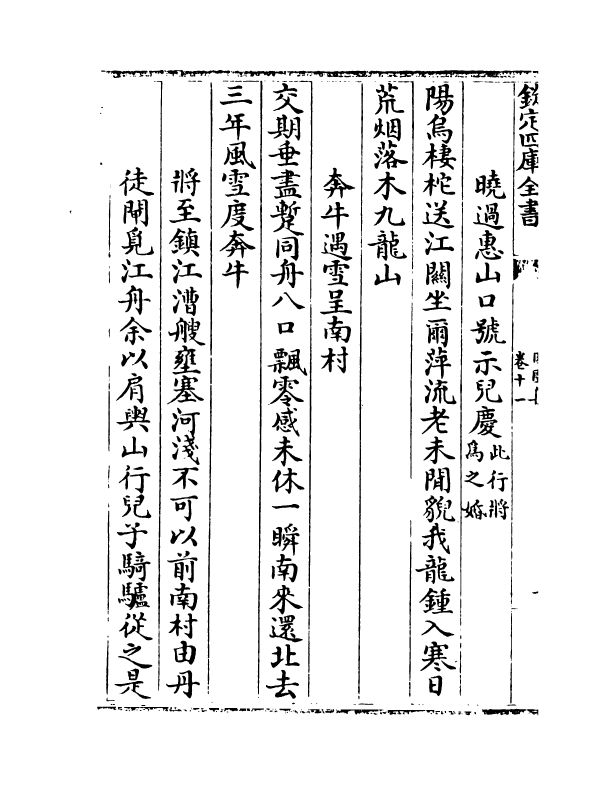 欽定四庫全書
卷十一
曉過惠山口號示兒慶此行將爲之婚
陽烏棲柁送江關坐爾萍流老未閒貌我龍鍾入寒日
荒烟落木九龍山
奔牛遇雪呈南村
交期垂盡蹔同舟八口飄零感未休一瞬南來還北去
三年風雪度奔牛
將至鎮江漕艘壅塞河淺不可以前南村由丹
徒閘覓江舟余以肩輿山行兒子騎驢從之是